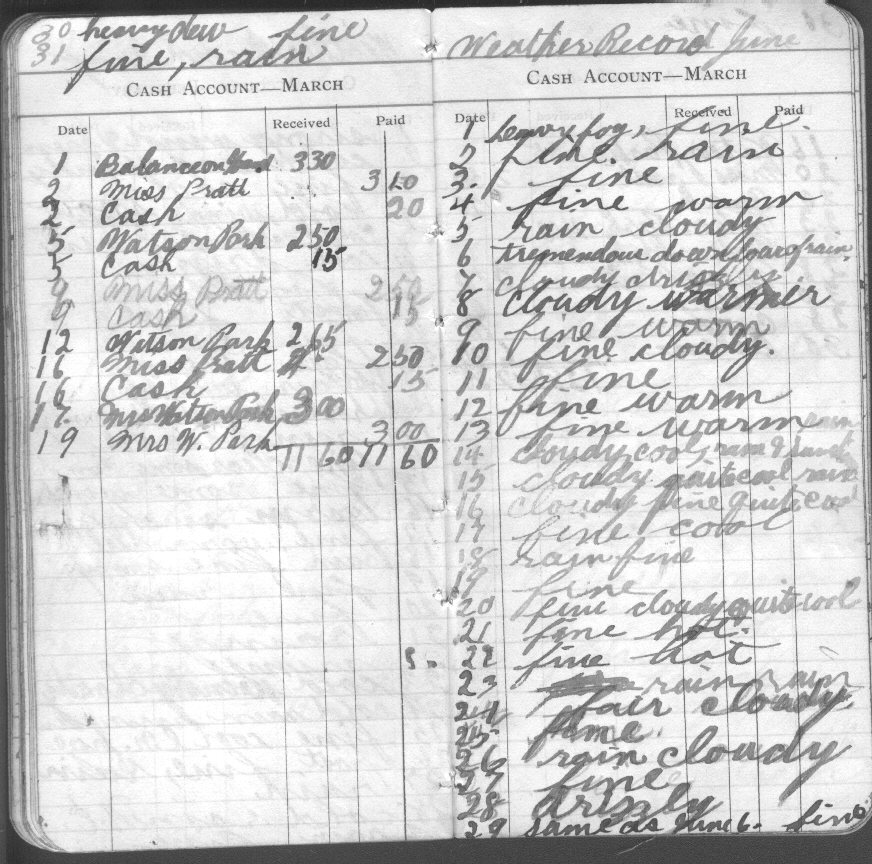 30 heavy dew fine
31 fine, rain
CASH ACCOUNT—MARCH
Date Received Paid
1 Balance on Hand 330
2 Miss Pratt 3 10
2 Cash 20
5 Watson Park 250
5 Cash 15
9 Miss Pratt 250
9 Cash 15
12 Watson Park 265
16 Miss Pratt 250
16 Cash 15
17. Mrs Watson Park 300
19 Mrs W. Park 300
11 60 11 60
Weather Record June
CASH ACCOUNT—MARCH
Date Received Paid
1 heavy fog, fine.
2 fine. rain
3. fine
4 fine warm
5 rain cloudy
6 tremendous down pour of rain.
7 cloudy drizzly
8 cloudy warmer
9 fine warm
10 fine cloudy.
11 fine
12 fine warm
13 fine warm rain
14 cloudy cool, rain &
15 cloudy quite cool rain
16 cloudy fine quite cool
17 fine cool
18 rain fine
19 fine
20 fine cloudy quite cool
21 fine hot.
22 fine hot
23 rain rain
24 fair cloudy.
25 fine
26 rain cloudy
27 fine
28 drizzly
29 same as June 6. fine